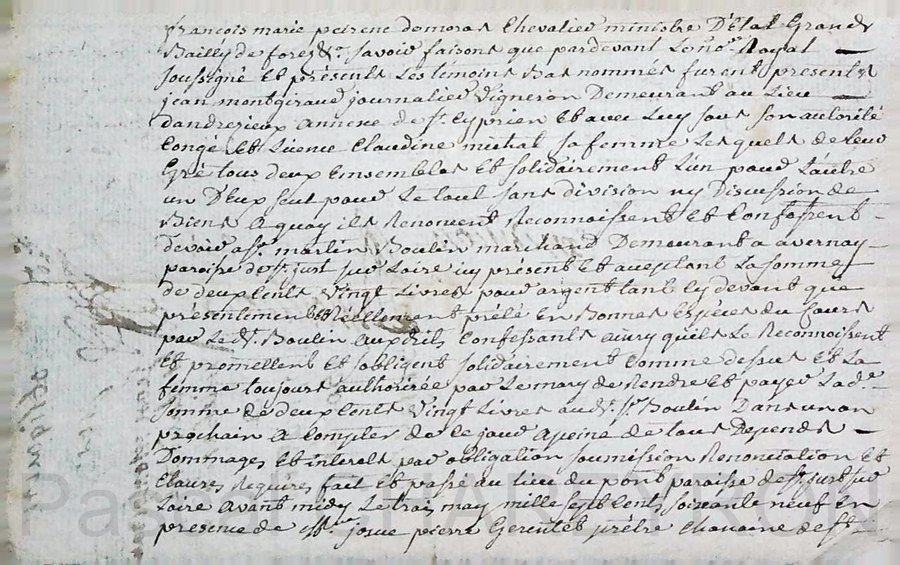 françois marie peirenc demoras Chevalier ministre D'Etat Grand
Bailly de forest &r. Savoir faisons que pardevant Le no.re Royal
Soussigné Et présents Les témoins Bas nommés furent presents
jean montgiraud journalier vigneron Demeurant au Lieu
dandrezieux annexe de St. Cyprien Et avec Luy sous son autorité
Congé Et Licence Claudine michal sa femme Lesquels de Leur
Gré tous deux Ensembles Et solidairement L'un pour L'autre
un D'Eux seul pour Le tout sans division ny Discussion de
Biens A quoy ils Renoncent Reconnoissent Et Confessent
devoir a Sr. martin Boulin marchand Demeurant a avernay
paroisse de St. just sur Loire icy présent Et acceptant La somme
de deux Cents Vingt Livres pour argent tant cy devant que
présentement Réellement prêté En Bonnes Espèces du Cours
par Le dt. Boulin auxdits Confessants ainsy qu'ils Le Reconnoissent
Et promettent Et obligent solidairement Comme dessus Et La
femme toujours authorizée par Le mary de Rendre Et payer La de.
somme de deux Cents Vingt Livres au dt. Sr. Boulin Dans un an
prochain A Compter de Ce jour a peine de tous Depends
Dommages Et interets par obligation soumission Renonciation Et
Clauses Requises fait Et passé au Lieu du pont paroisse de St. just sur
Loire avant midy Le trois may mille sept Cents soixante neuf En
presence de Mre. josue pierre Gerentet prêtre Chanoine de St.